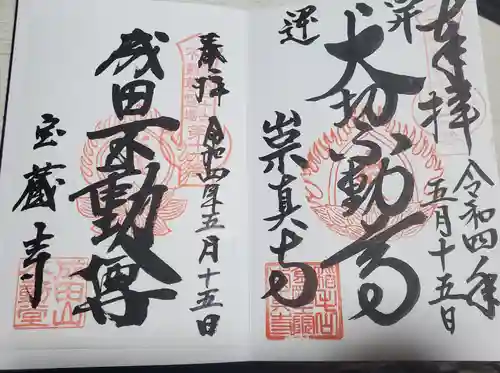 奉拝
令和四年
五月十五日
昇
運
大切不動尊
崇真寺
奉拝
令和四年五月十五日
成田不動尊
宝蔵寺
成田山
不動堂